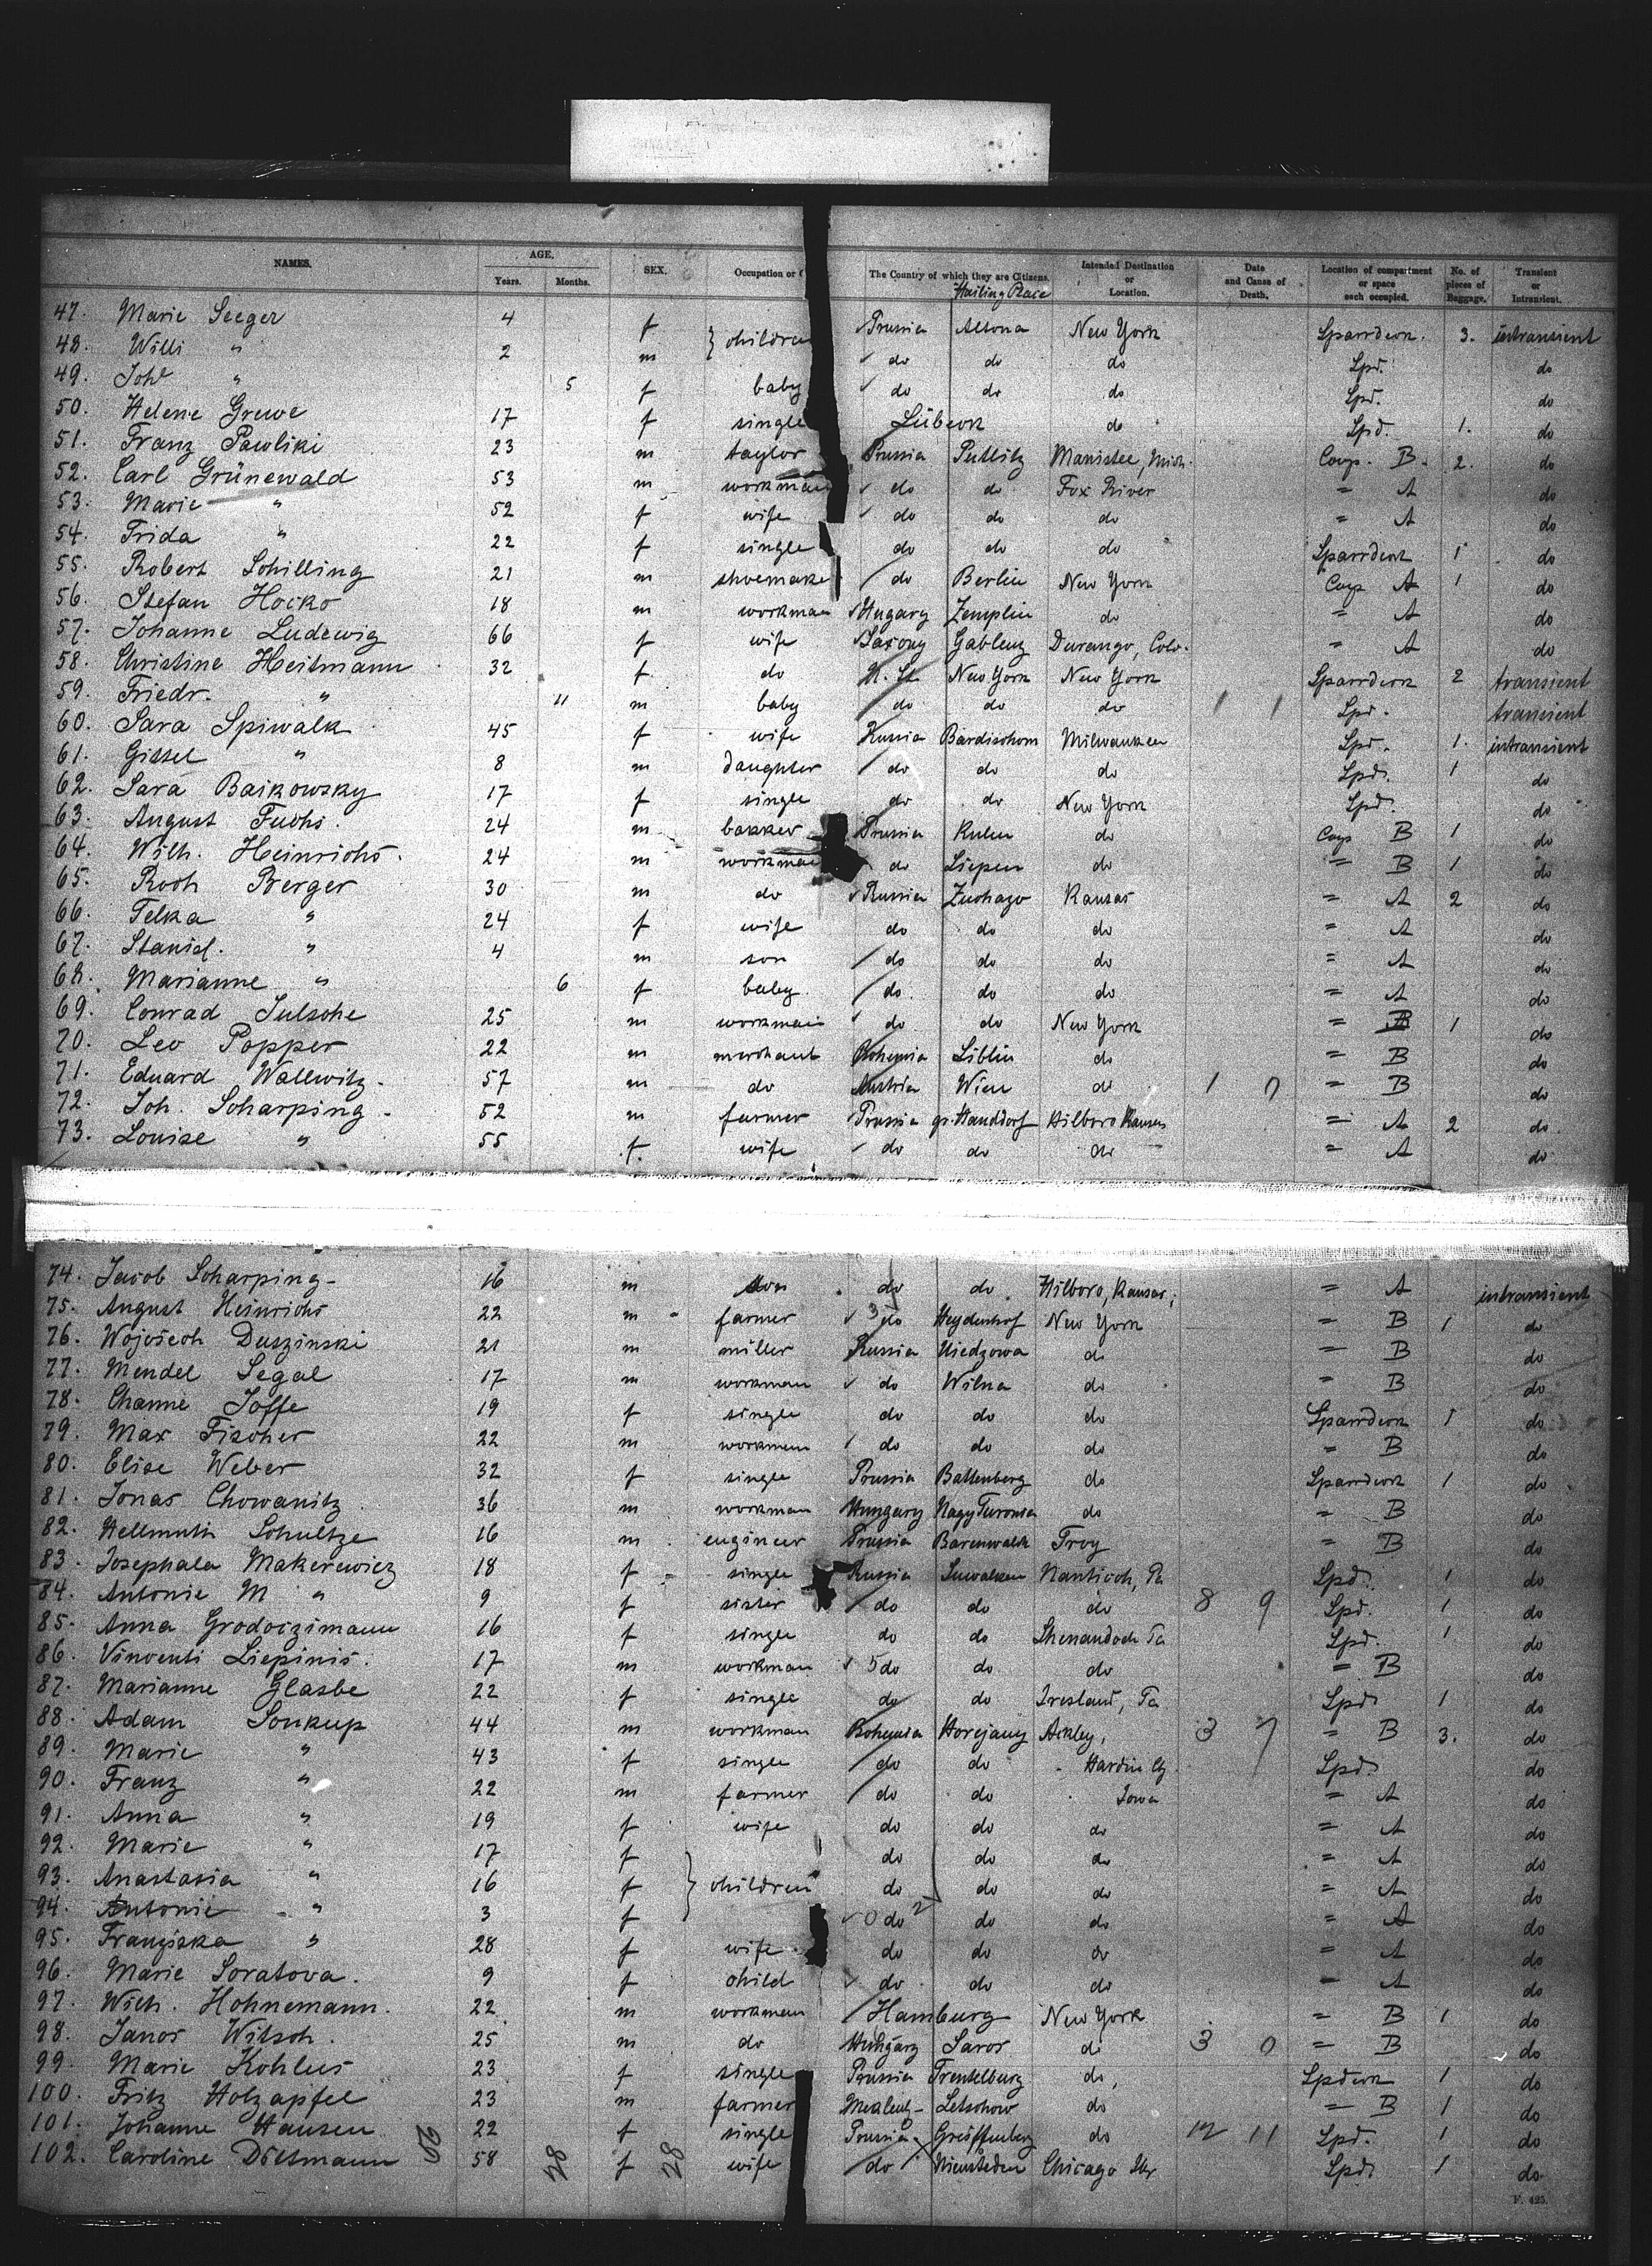 NAMES. AGE. Years. Months. SEX. Occupation or The Country of which they are Citizens. Hailing Place Intended Destination or Location. Date and Cause of Death. Location of compartment or space each occupied. No. of pieces of Baggage. Transient or Intransient.
47. Marie Seeger 4 f } children Prussia Altona New York Sparrdeck. 3. intransient
48. Willi " 2 m do do do Spd. do
49. Joh " 5 f baby do do do Spd. do
50. Helene Grewe 17 f single Lübeck do Spd. 1. do
51. Franz Pawliki 23 m taylor Prussia Putlitz Manistee, Mich. Coop. B. 2. do
52. Carl Grünewald 53 m workman do do Fox River " A do
53. Marie " 52 f wife do do do " A do
54. Frida " 22 f single do do do Sparrdeck 1 do
55. Robert Schilling 21 m shoemake do Berlin New York Coop A 1 do
56. Stefan Hocko 18 m workman Hugary Zemplin do " A do
57. Johanne Ludewig 66 f wife Saxony Gablenz Durango, Colo. " A do
58. Christine Heitmann 32 f do U. St. New York New York Sparrdeck 2 transient
59. Friedr. " 11 m baby do do do 1 1 Spd. transient
60. Sara Spiwalk 45 f wife Russia Bardischom Milwaukee Spd. 1. intransient
61. Gissel " 8 m daughter do do do Spd. 1 do
62. Sara Baikowsky 17 f single do do New York Spd. do
63. August Fuchs. 24 m bakker Prussia Kulm do Coop B 1 do
64. Wilh. Heinrichs. 24 m workman do Liepen do " B 1 do
65. Roch Berger 30 m do Russia Zuchago Kansas " A 2 do
66. Telka " 24 f wife do do do " A do
67. Stanisl. " 4 m son do do do " A do
68. Marianne " 6 f baby. do. do do " A do
69. Conrad Julsche 25 m workman do do New York " B 1 do
70. Leo Popper 22 m merchant Bohemia Liblin do " B do
71. Eduard Wallwitz. 57 m do Austria Wien do 1 7 " B do
72. Joh. Scharping. 52 m farmer Prussia gr. Handdorf Hilboro Kansas " A 2 do
73. Louise " 55 f. wife do do do " A do
74. Jacob Scharping 16 m son do do Hilboro, Kansas, " A intransient
75. August Heinrichs 22 m farmer 3 do Heydenhof New York " B 1 do
76. Wojciech Duszinski 21 m miller Russia Niedzowa do " B do
77. Mendel Segal 17 m workman do Wilna do " B do
78. Channe Joffe 19 f single do do do Sparrdeck 1 do
79. Max Fischer 22 m workman do do do " B do
80. Elise Weber 32 f single Prussia Battenberg do Sparrdeck 1 do
81. Jonas Chowanitz 36 m workman Hungary Nagy Turonia do " B do
82. Hellmuth Schultze 16 m engineer Prussia Barenwalde Troy " B do
83. Josephala Makerewicz 18 f single Russia Suwalken Nanticoh, Pa Spd. 1 do
84. Antonie M " 9 f sister do do do 8 9 Spd. 1 do
85. Anna Grodoczimann 16 f single do do Shenandoah Pa Spd. 1 do
86. Vincenti Liepinis. 17 m workman 5 do do do " B do
87. Marianne Glasbe 22 f single do do Iresland, Pa Spd. 1 do
88. Adam Soukup 44 m workman Bohemia Horejany Ackley, 3 7 " B 3. do
89. Marie " 43 f single do do Hardin Cy. Spd. do
90. Franz " 22 m farmer do do Iowa " A do
91. Anna " 19 f wife do do do " A do
92. Marie " 17 f do do do " A do
93. Anastasia " 16 f } children do do do " A do
94. Antonie " 3 f 0 do 2 do do " A do
95. Franziska " 28 f wife do do do " A do
96. Marie Soratova. 9 f child do do do " A do
97. Wilh. Hohnemann. 22 m workman Hamburg New York " B 1 do
98. Janos Witsch. 25 m do Hungary Saros do 3 0 " B do
99. Marie Kohlus 23 f single Prussia Trentelburg do, Spdeck 1 do
100. Fritz Holzapfel 23 m farmer Mecklenb- Letschow do " B 1 do
101. Johanne Hansen 22 f single Prussia Greiffenberg do 12 11 Spd. 1 do
102. Caroline Dittmann 58 f wife do Niensteden Chicago Spd. 1 do
28 28
F. 425.